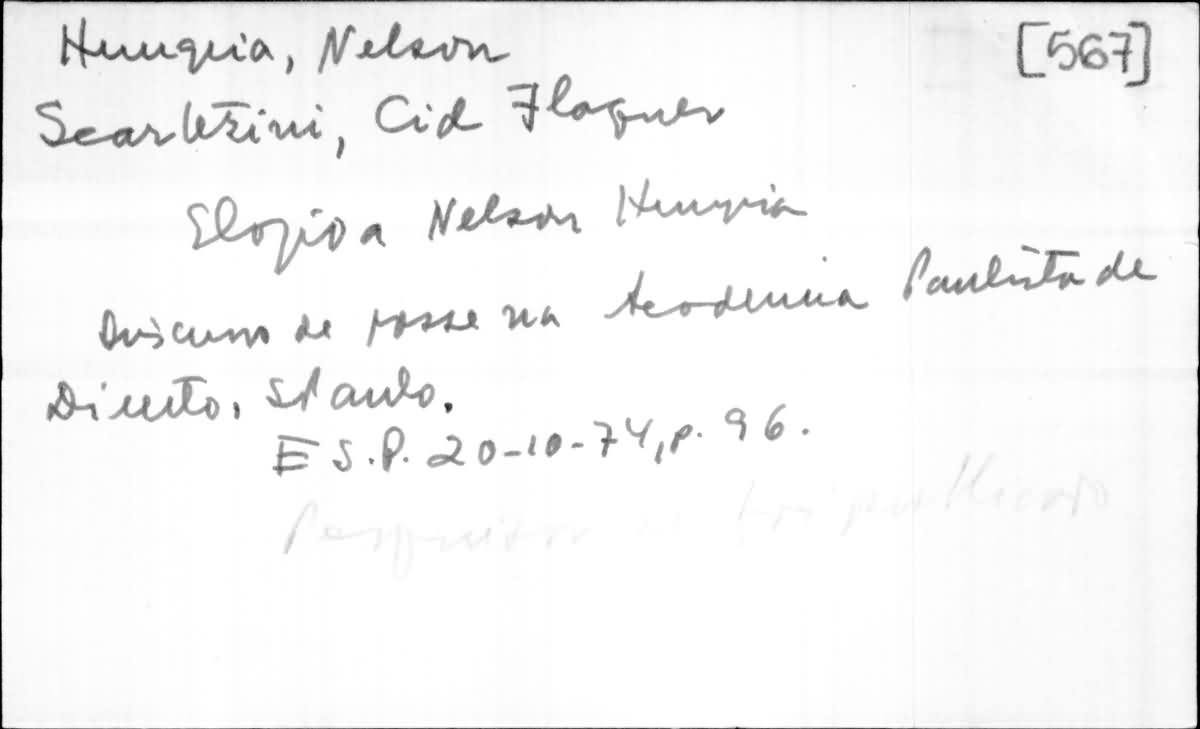 Hungria, Nelson [567]
Scartezini, Cid Flaquer
Elogio a Nelson Hungria
Discurso de posse na Academia Paulista de
Direito, S Paulo.
E S.P. 20-10-74, p. 96.
Pesquisar se foi publicado